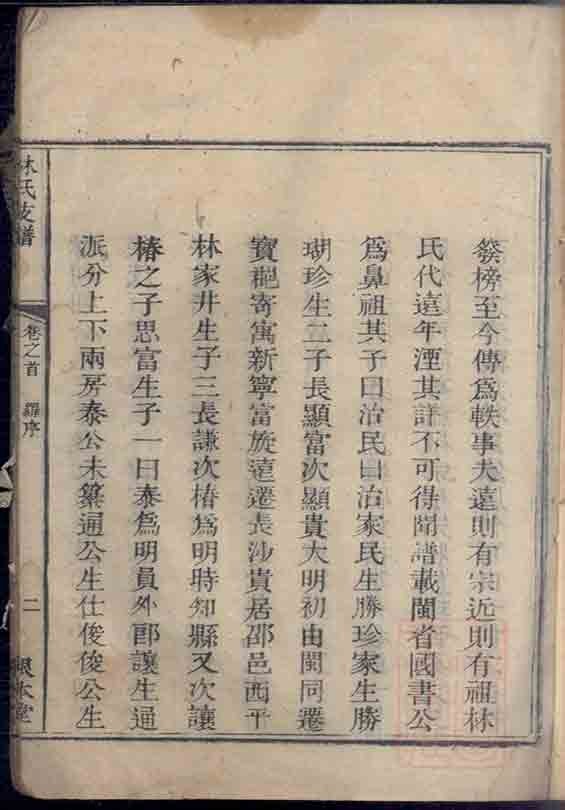 發榜至今傳爲軼事夫遠則有宗近則有祖林
氏代遠年湮其詳不可得聞譜載閩省國書公
爲鼻祖其子曰治民曰治家民生勝珍家生勝
瑚珍生二子長顯富次顯貴大明初由閩同遷
寶郡寄寓新寧富旋遠遷長沙貴居邵邑西平
林家井生子三長謙次椿爲明時知縣又次讓
椿之子思富生子一曰泰爲明員外郎讓生通
派分上下兩房泰公未纂通公生仕俊俊公生
林氏支譜
卷之首 羅序
二
根本堂